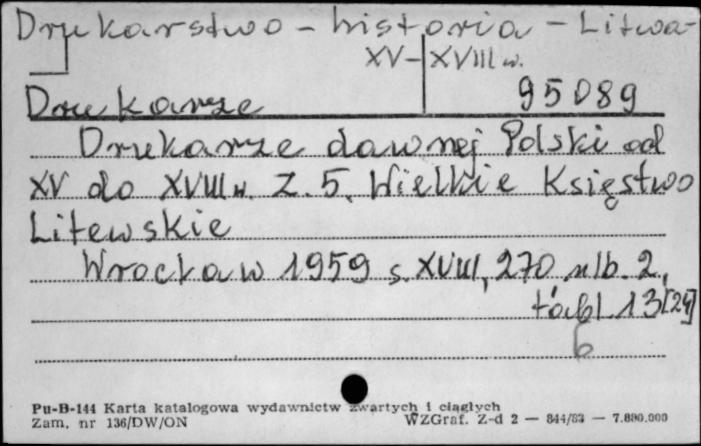 Drukarstwo - historia - Litwa -
XV - XVIII w.
Drukarze 95089
Drukarze dawnej Polski od
XV do XVIII w. Z. 5. Wielkie Księstwo
Litewskie
Wrocław 1959 s. XVIII, 270 nlb. 2,
tabl. 13 [24]
6
Pu-B-144 Karta katalogowa wydawnictw zwartych i ciągłych
Zam. nr 136/DW/ON WZGraf. Z-d 2 — 844/83 — 7.890.000